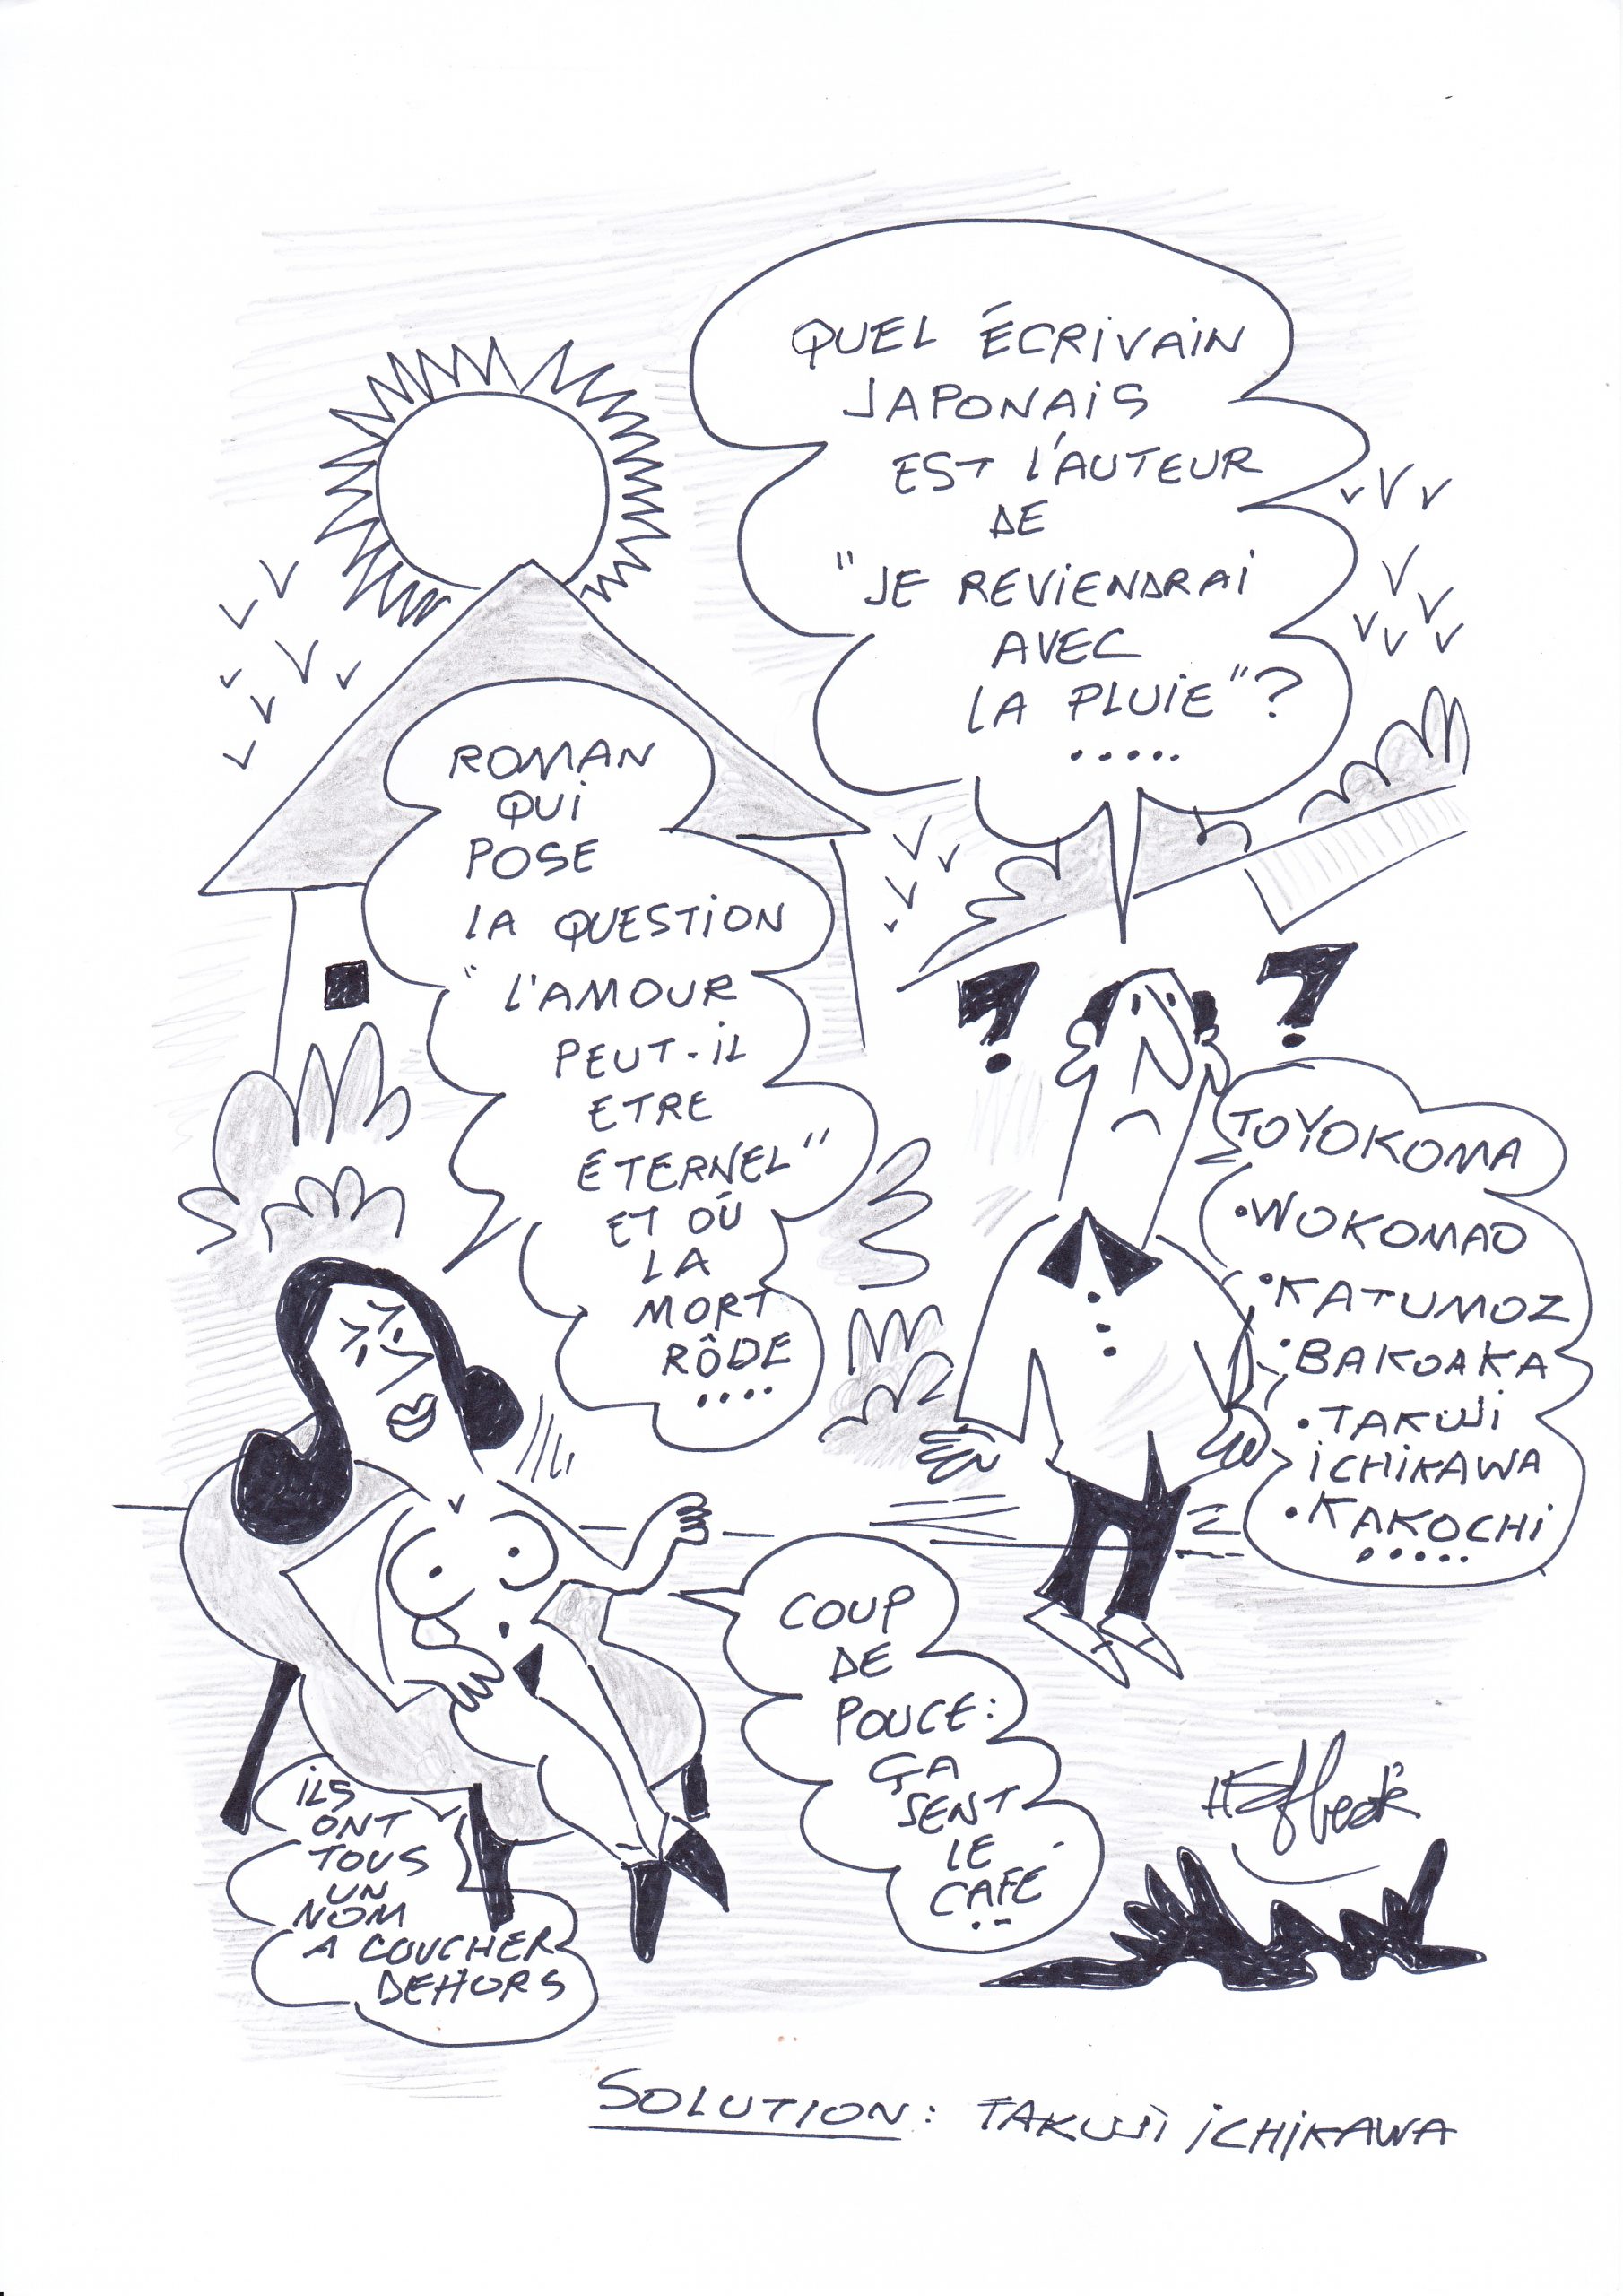 QUEL ÉCRIVAIN
JAPONAIS
EST L'AUTEUR
DE
"JE REVIENDRAI
AVEC
LA PLUIE"?
.....
ROMAN
QUI
POSE
LA QUESTION
"L'AMOUR
PEUT-IL
ETRE
ÉTERNEL"
ET OÚ
LA
MORT
RÔDE
....
? ?
TOYOKOMA
•WOKOMAO
•KATUMOZ
•BAKOAKA
•TAKUJi
iCHiKAWA
•KAKOCHi
.....
COUP
DE
POUCE:
ÇA
SENT
LE
CAFÉ
..
iLS
ONT
TOUS
UN
NOM
A COUCHER
DEHORS
SOLUTION: TAKUJi iCHiKAWA